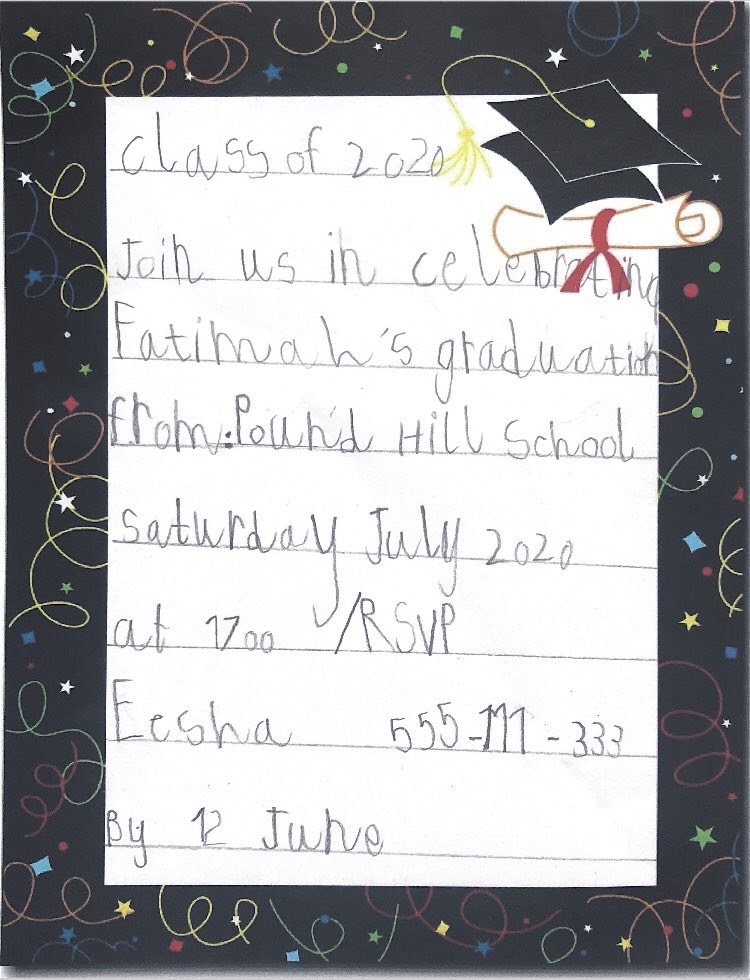 class of 2020
Join us in celebrating
Fatimah's graduation
from: Pound Hill School
saturday July 2020
at 1700 /RSVP
Eesha 555-111-333
By 12 June